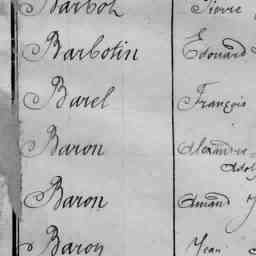 Barbot Pierre
Barbotin Edouard
Barel François
Baron Alexandre
Adol
Baron Amand J
Baron Jean